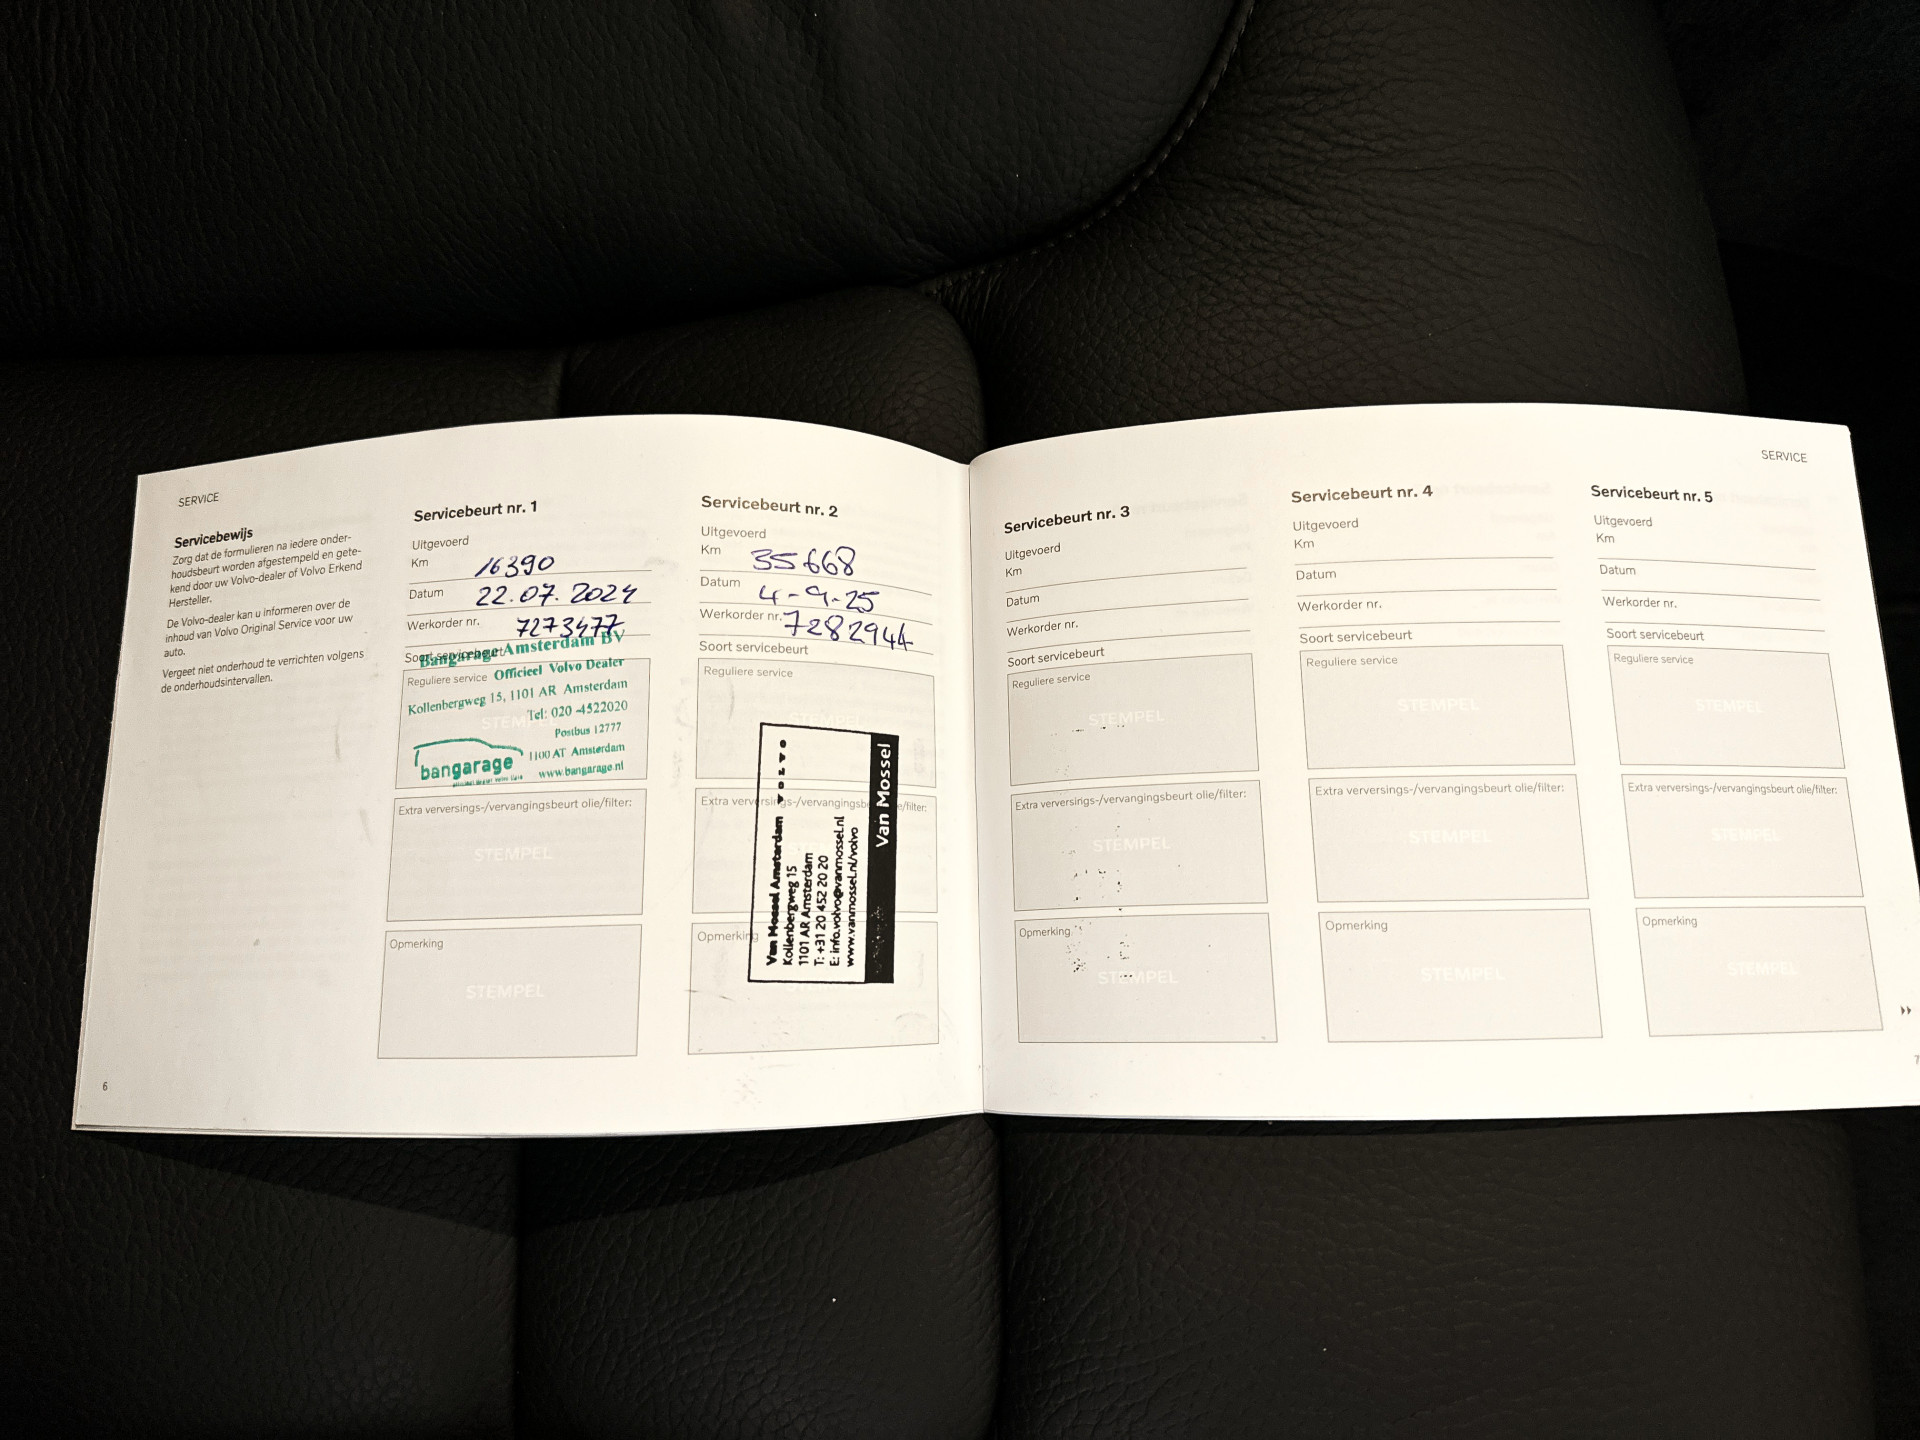 SERVICE
Servicebewijs
Zorg dat de formulieren na iedere onder-
houdsbeurt worden afgestempeld en gete-
kend door uw Volvo-dealer of Volvo Erkend
Hersteller.
De Volvo-dealer kan u informeren over de
inhoud van Volvo Original Service voor uw
auto.
Vergeet niet onderhoud te verrichten volgens
de onderhoudsintervallen.
6
Servicebeurt nr. 1
Uitgevoerd
Km 16390
Datum 22.07.2024
Werkorder nr. 7273477
Soort servicebeurt
Bangarage Amsterdam BV
Reguliere service
Officieel Volvo Dealer
Kollenbergweg 15, 1101 AR Amsterdam
STEMPEL
Tel: 020 -4522020
Postbus 12777
1100 AT Amsterdam
www.bangarage.nl
bangarage
Extra verversings-/vervangingsbeurt olie/filter:
STEMPEL
Opmerking
STEMPEL
Servicebeurt nr. 2
Uitgevoerd
Km 35668
Datum 4-9-25
Werkorder nr. 7282944
Soort servicebeurt
Reguliere service
STEMPEL
Extra verversings-/vervangingsbeurt olie/filter:
Opmerking
VOLVO
Van Mossel Amsterdam
Kollenbergweg 15
1101 AR Amsterdam
T: +31 20 452 20 20
E: info.volvo@vanmossel.nl
www.vanmossel.nl/volvo
Van Mossel
Servicebeurt nr. 3
Uitgevoerd
Km
Datum
Werkorder nr.
Soort servicebeurt
Reguliere service
STEMPEL
Extra verversings-/vervangingsbeurt olie/filter:
STEMPEL
Opmerking
STEMPEL
SERVICE
Servicebeurt nr. 4
Uitgevoerd
Km
Datum
Werkorder nr.
Soort servicebeurt
Reguliere service
STEMPEL
Extra verversings-/vervangingsbeurt olie/filter:
STEMPEL
Opmerking
STEMPEL
Servicebeurt nr. 5
Uitgevoerd
Km
Datum
Werkorder nr.
Soort servicebeurt
Reguliere service
STEMPEL
Extra verversings-/vervangingsbeurt olie/filter:
STEMPEL
Opmerking
STEMPEL
7